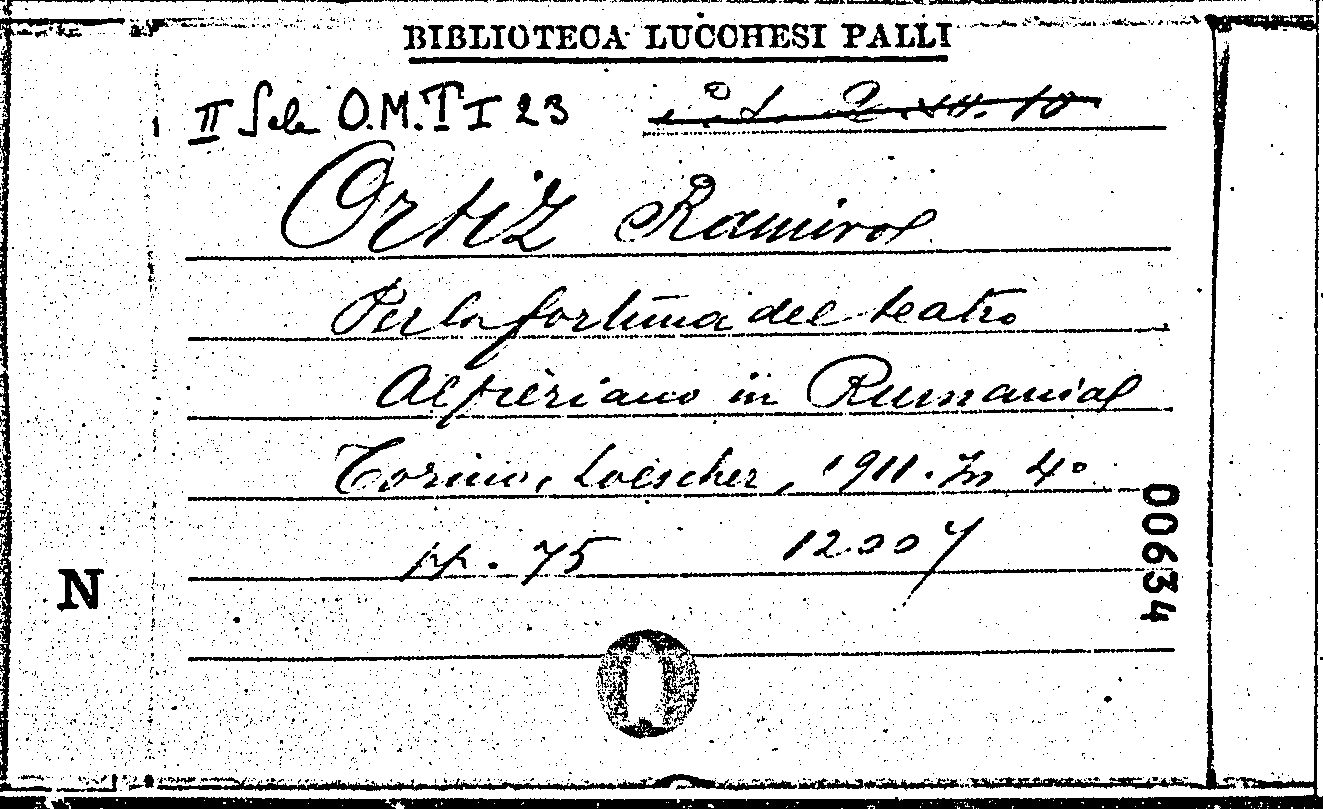 BIBLIOTECA LUCCHESI PALLI
II Sala O.M.T I 23
Ortiz Ramiro
Per la fortuna del teatro
Alfieriano in Rumania
Torino, Loescher, 1911. In 4°
pp. 75 12007
N
00634